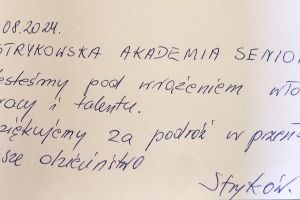 .08.2024.
STRYKOWSKA AKADEMIA SENIO
jesteśmy pod wrażeniem wło
racy i talentu.
ziękujemy za podróż w przen
sze dzieciństwo
Stryków.